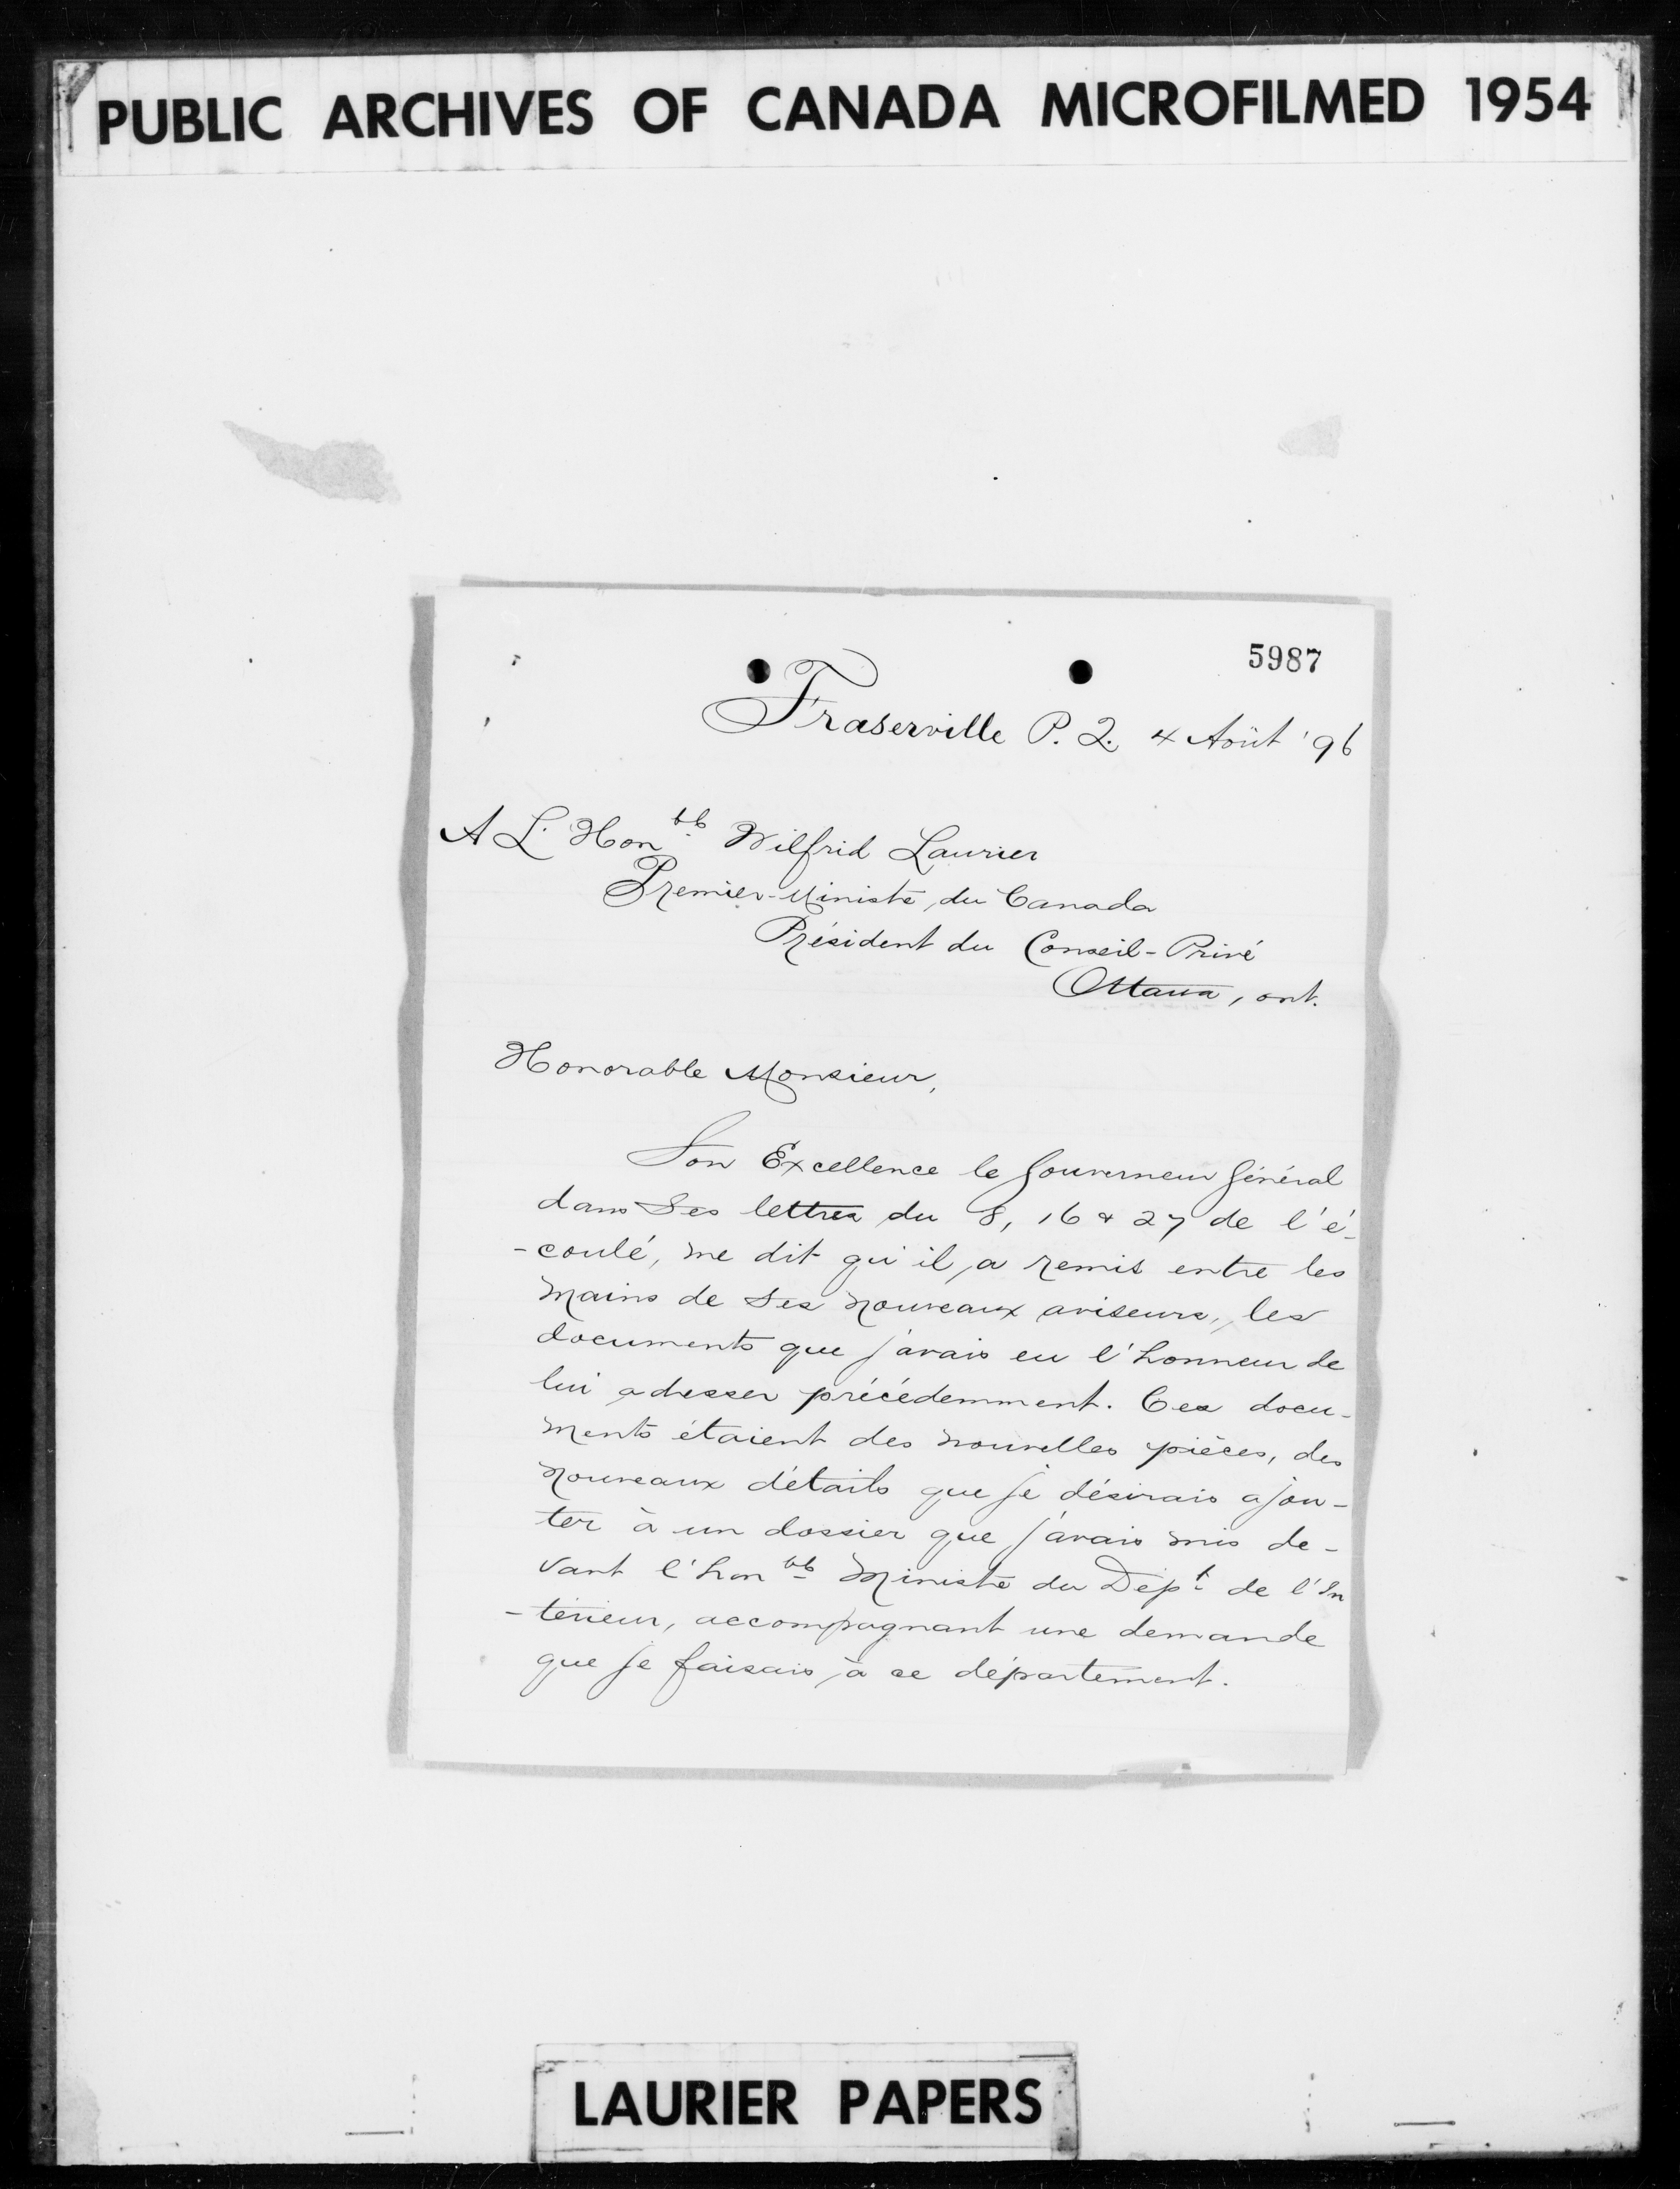 PUBLIC ARCHIVES OF CANADA MICROFILMED 1954
5987
Fraserville P. Q. 4 Août '96
A L'Hon^ble Wilfrid Laurier
Premier-Ministre du Canada
Président du Conseil-Privé
Ottawa, ont.
Honorable Monsieur,
Son Excellence le Gouverneur Général
dans Ses lettres du 8, 16 & 27 de l'é-
-coulé, me dit qu'il a remis entre les
mains de Ses nouveaux aviseurs, les
documents que j'avais eu l'honneur de
lui adresser précédemment. Ces docu-
ments étaient des nouvelles pièces, des
nouveaux détails que je désirais ajou-
ter à un dossier que j'avais mis de-
vant l'hon^ble Ministre du Dép^t de l'In
-térieur, accompagnant une demande
que je faisais à ce département.
LAURIER PAPERS